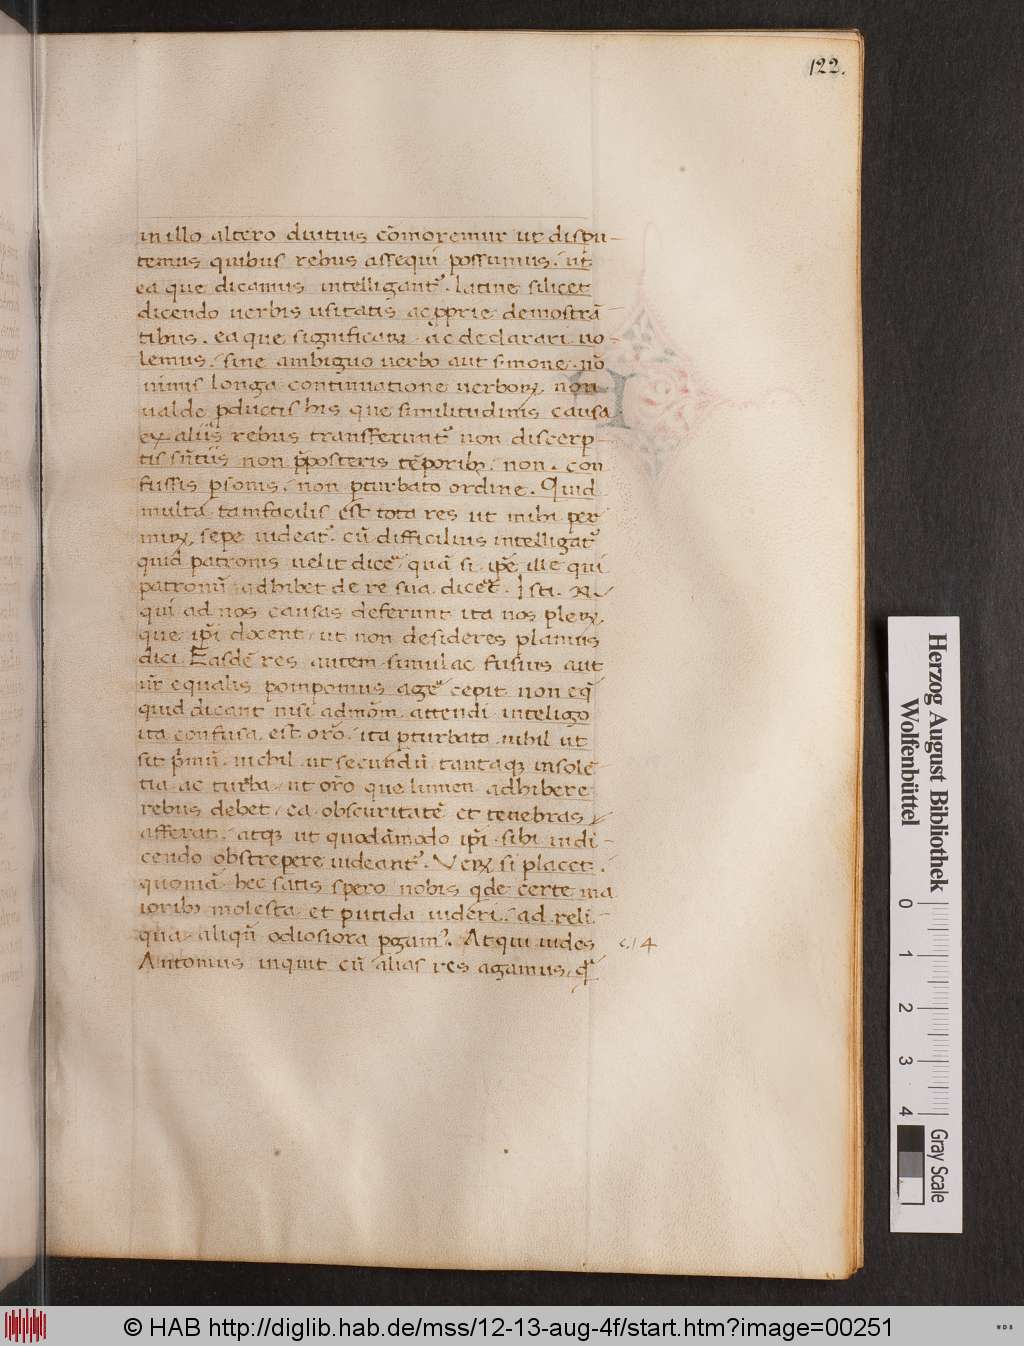 122.
in illo altero diutius cōmoremur ut dispu-
temus quibus rebus assequi possumus. ut
ea que dicamus intelligant᷑. latine silicet
dicendo uerbis usitatis ac ꝓprie demostrā-
tibus. ea que significari ac declarari uo-
lemus. sine ambiguo uerbo aut s̄mone. nō
nimis longa continuatione uerboꝝ. non
ualde ꝓductis his que similitudinis causa
ex aliis rebus transferunt᷑ non discerp-
tis sn̄tiis non p̄posteris tēporibꝫ. non. con
fussis ꝑsonis. non ꝑturbato ordine. Quid
multa tam facilis est tota res ut mihi per
miꝝ. sepe uideat᷑. cū difficilius intelligat᷑
quid patronis uelit dice᷑ quā si ip̄e ille qui
patronū adhibet de re sua dice᷑t. Isti.
qui ad nos causas deferunt ita nos pleꝝ.
que ip̄i docent, ut non desideres planius
dici. Easdē res autem simul ac fusius aut
ur̄ equalis pomponius age᷑ cepit non eq̄
quid dicant nisi admōm attendi inteligo
ita confusa est oro᷑. ita ꝑturbata nihil ut
sit p̄mū. nichil ut secundū tantaqꝫ insolē-
tia ac turba ut oro᷑ que lumen adhibere
rebus debet, ea obscuritatē et tenebras
afferat. atqꝫ ut quodāmodo ip̄i sibi in di-
cendo obstrepere uideant᷑. Veꝝ si placet.
quoniā hec satis spero nobis qͥde certe ma
ioribꝫ molesta et putida uideri. ad reli-
qua aliqn̄ odiosiora ꝑgam᷑. Atqui uides
c. 14
Antonius inquit cū alias res agamus,
H
Herzog August Bibliothek
Wolfenbüttel
0 1 2 3 4
Gray Scale
© HAB http://diglib.hab.de/mss/12-13-aug-4f/start.htm?image=00251